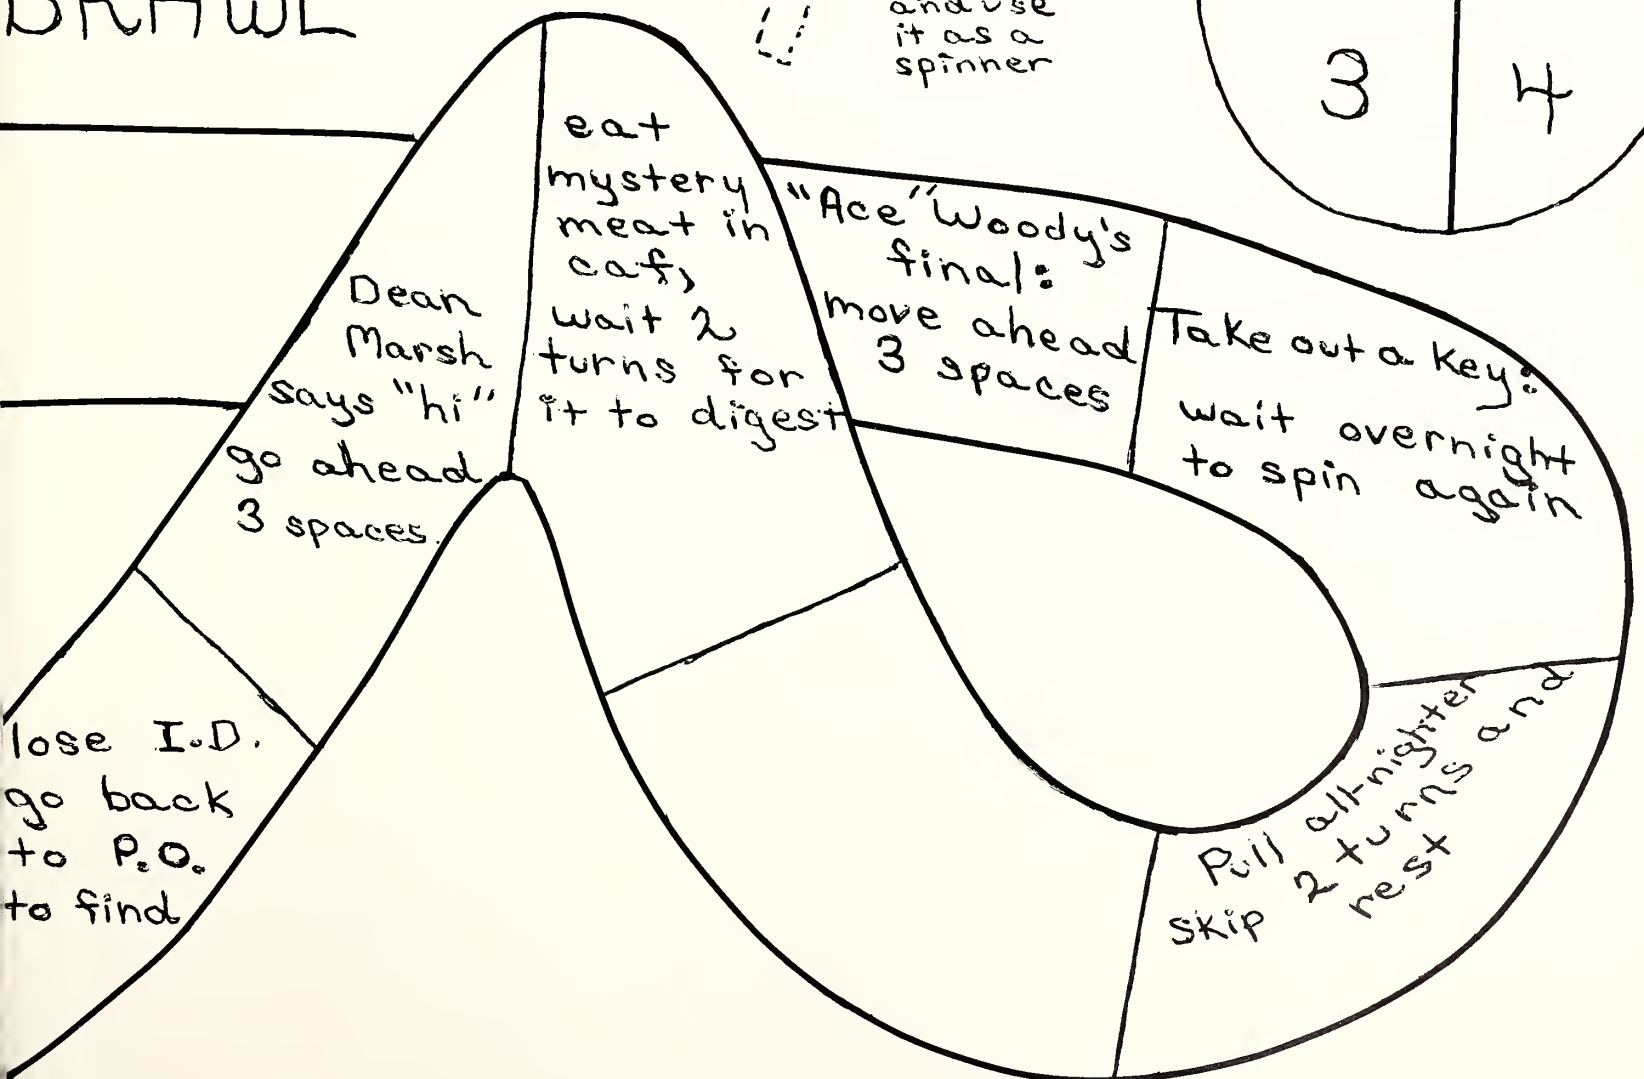 BRAWL
and use
it as a
spinner
3 4
eat
mystery
meat in
caf,
wait 2
turns for
it to digest
"Ace" Woody's
final:
move ahead
3 spaces
Take out a key:
wait overnight
to spin again
Dean
Marsh
says "hi"
go ahead
3 spaces.
lose I.D.
go back
to P.O.
to find
Pull all-nighter
skip 2 turns and
rest